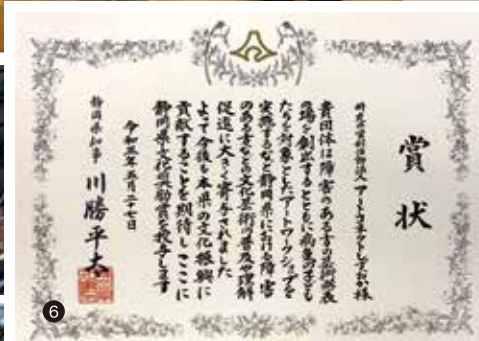 賞状
特定非営利活動法人アートコネクトしずおか様
貴団体は障害のある方の芸術発表
の場を創出するとともに病気の子ども
たちを対象としたアートワークショップを
実施するなど静岡県における障害
のある方などの文化芸術の普及や理解
促進に大きく寄与されました
よって今後も本県の文化振興に
貢献することを期待しここに
静岡県文化奨励賞を授与します
令和三年五月二十七日
静岡県知事 川勝平太
6